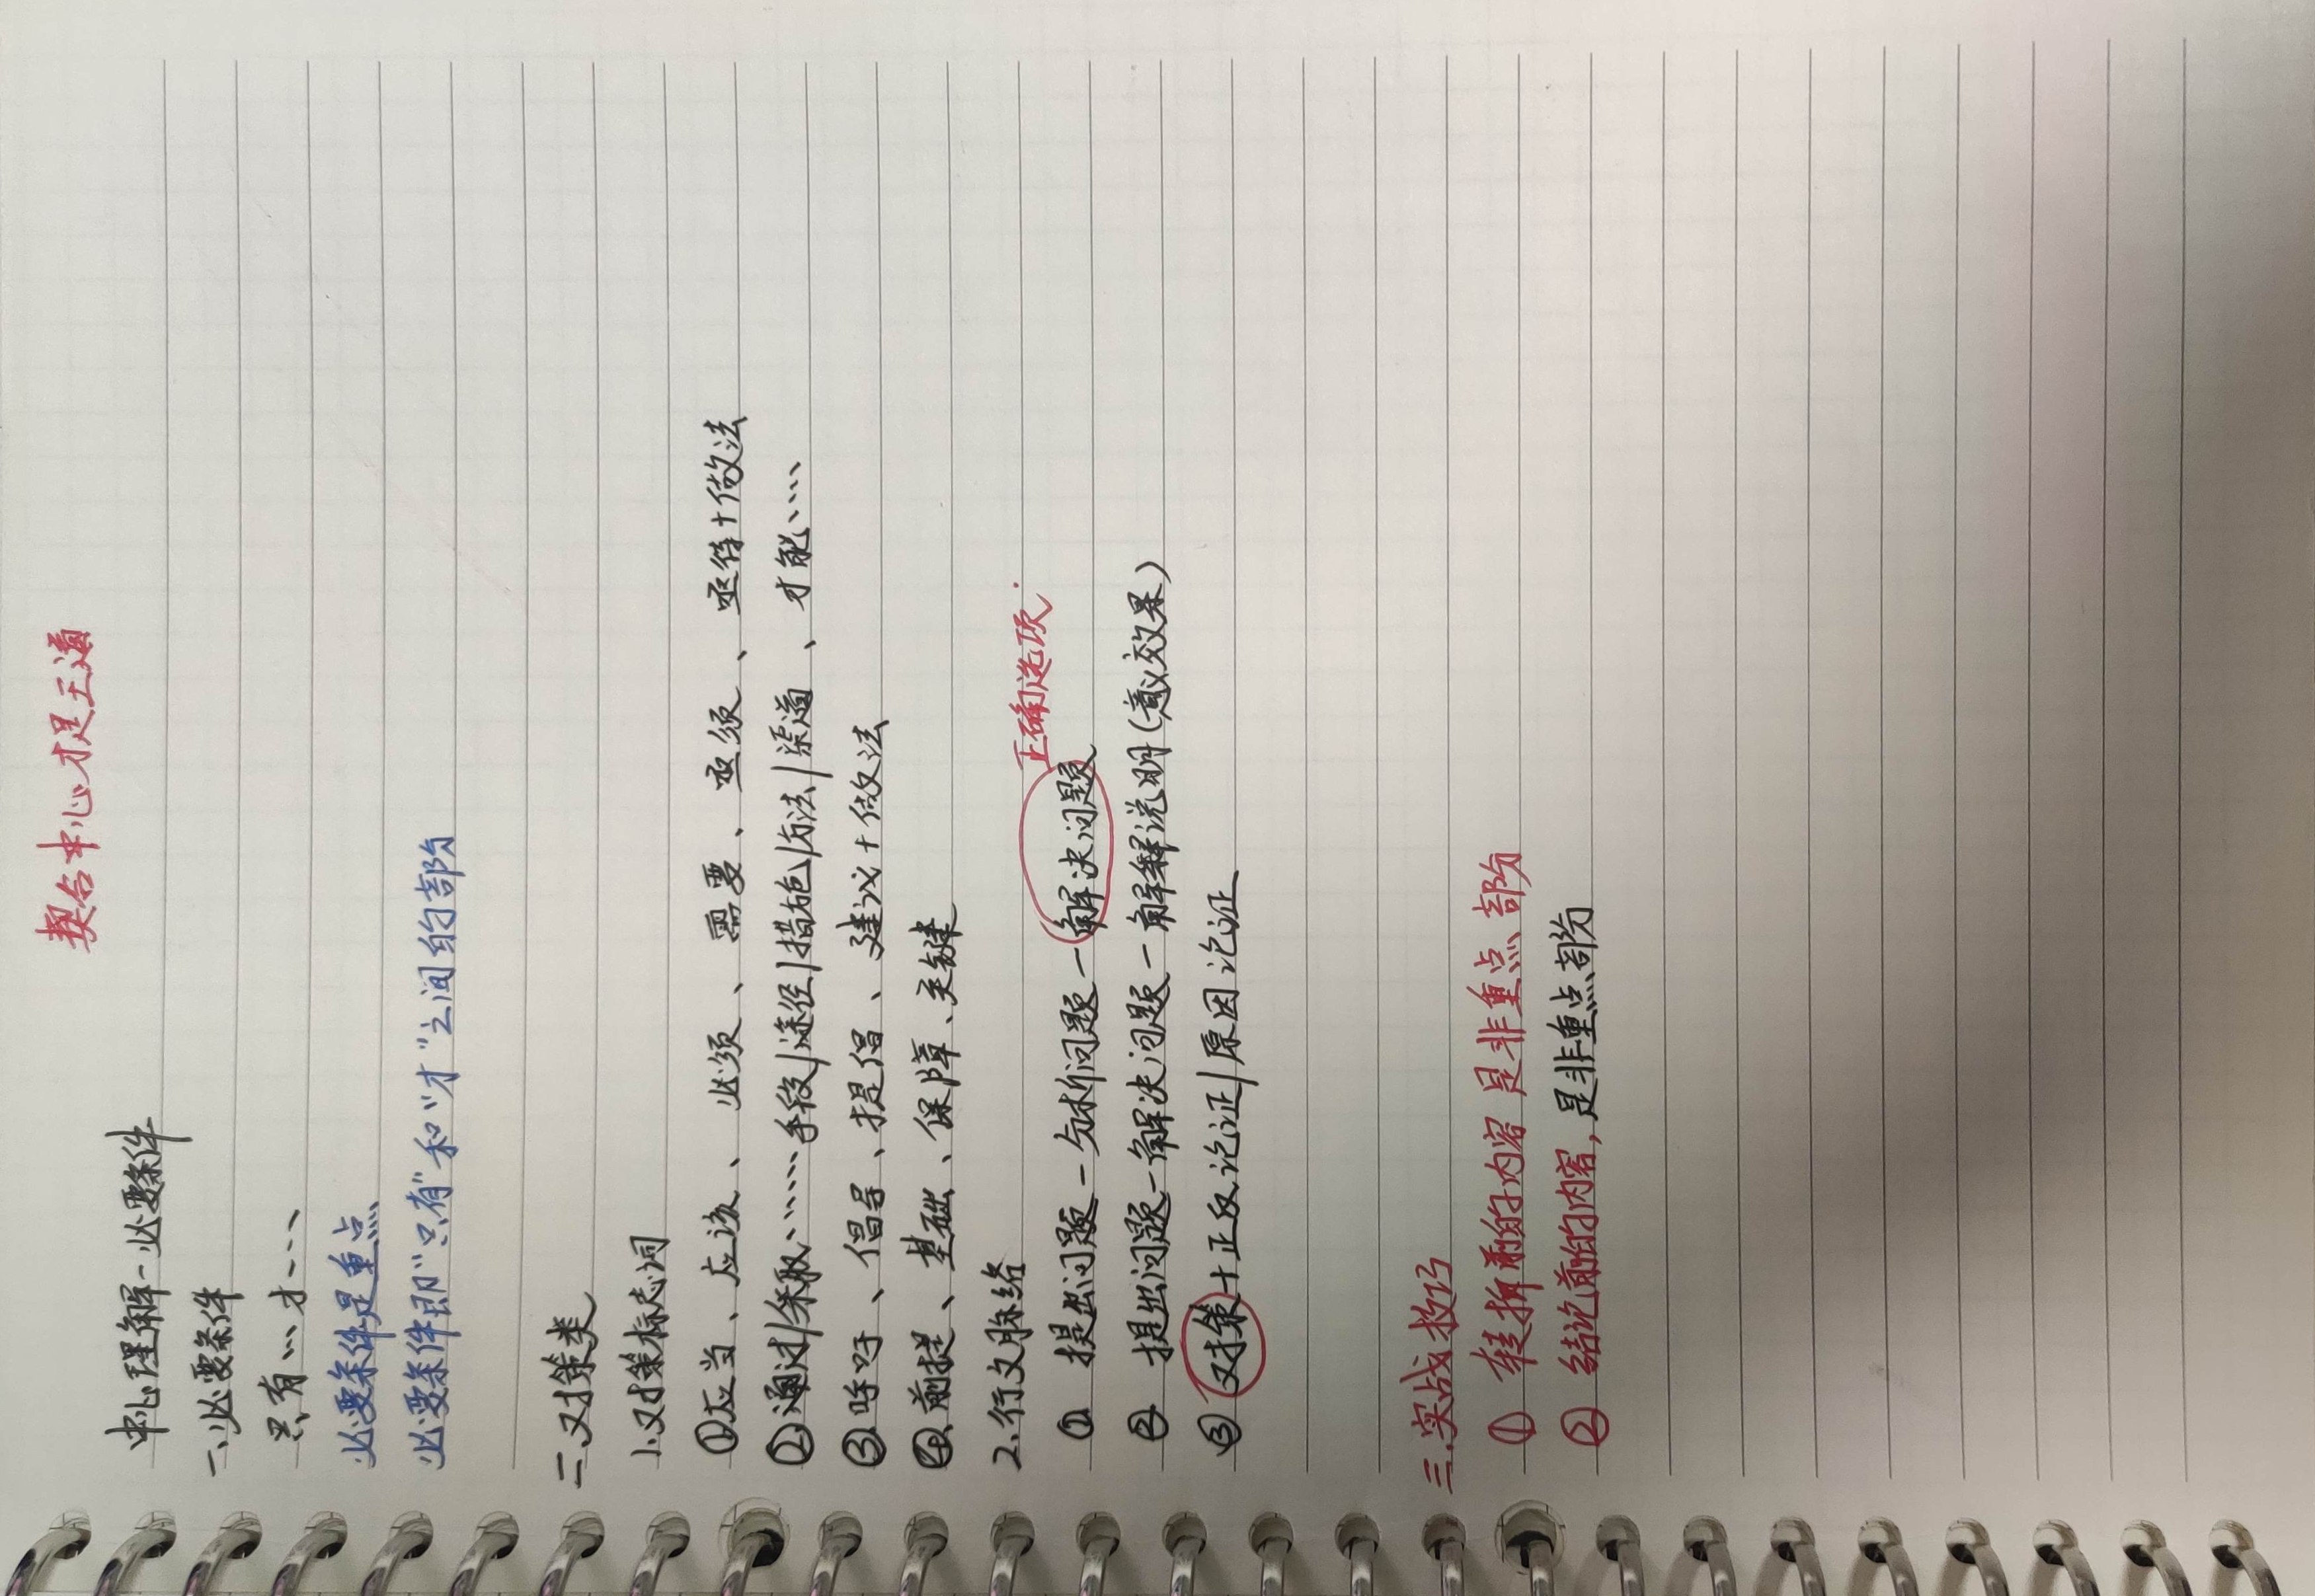 契合中心才是王道
中心理解-必要条件
一、必要条件
只有…才…
必要条件是重点
必要条件即“只有”和“才”之间的部分
二.对策类
1.对策标志词
①应当、应该、必须、需要、亟须、亟待+做法
②通过/采取……手段/途径/措施/方法/渠道、才能……
③呼吁、倡导、提倡、建议+做法
④前提、基础、保障、关键
2.行文脉络
正确选项
① 提出问题-分析问题-解决问题
② 提出问题-解决问题-解释说明(意义效果)
③ 对策+正反论证/原因论证
三.实战技巧
① 转折前的内容是非重点部分
② 结论前的内容,是非重点部分